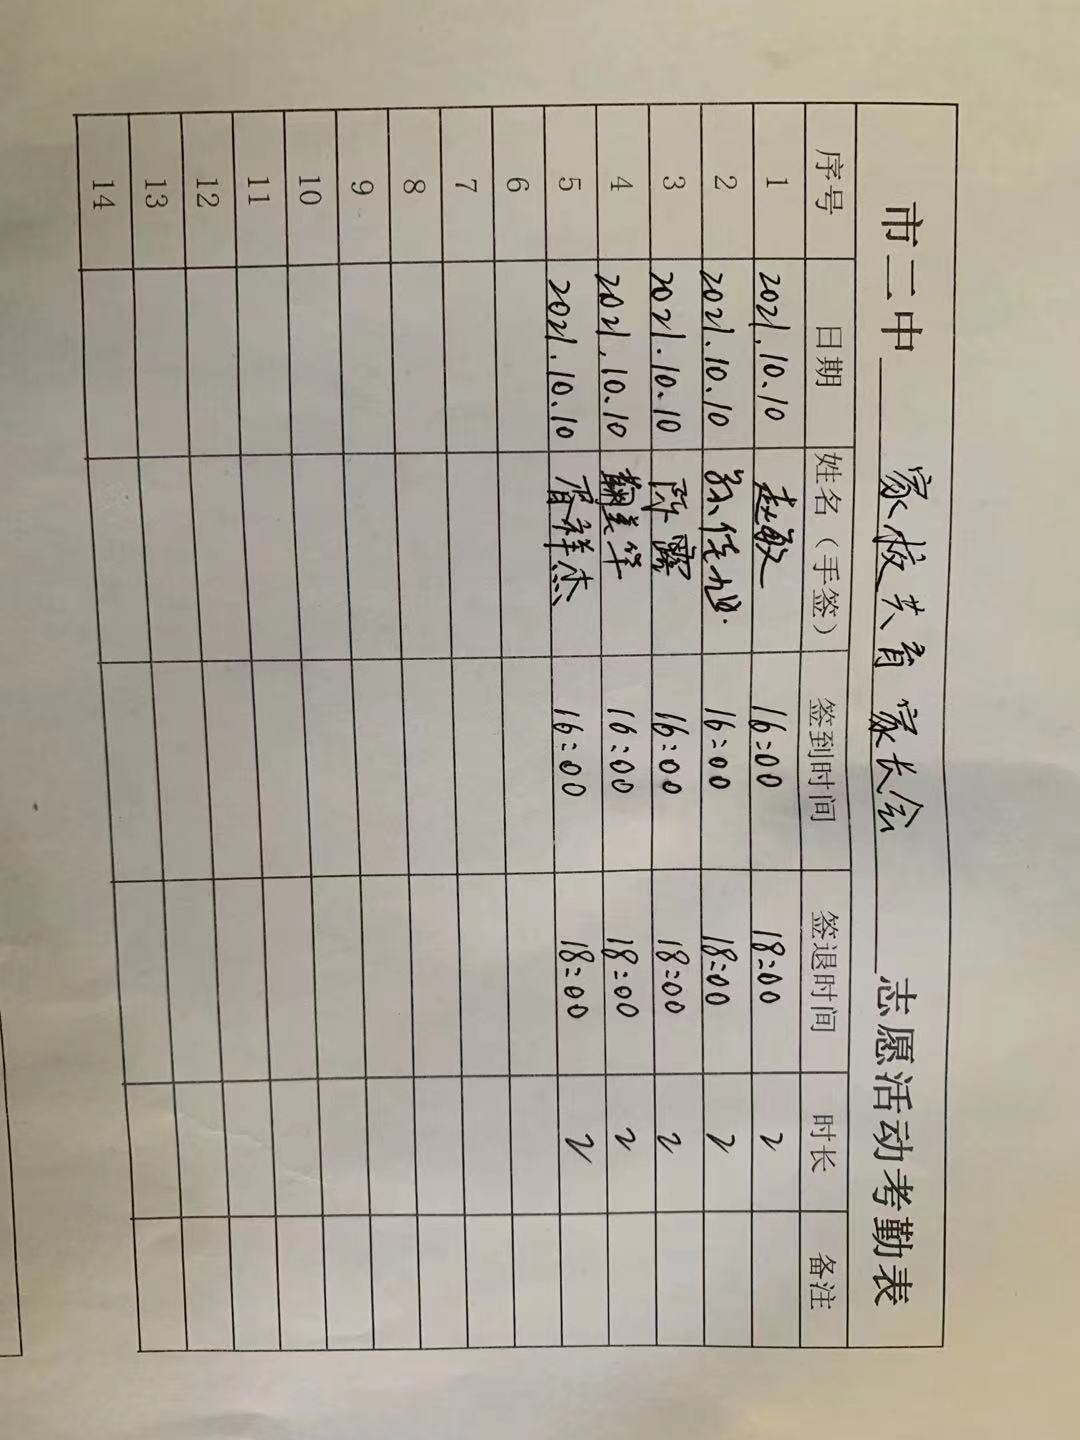 市二中 家校共育 家长会 志愿活动考勤表
序号 日期 姓名（手签） 签到时间 签退时间 时长 备注
1 2021.10.10 赵敏 16:00 18:00 2
2 2021.10.10 孙佳旭 16:00 18:00 2
3 2021.10.10 陈露 16:00 18:00 2
4 2021.10.10 16:00 18:00 2
5 2021.10.10 胥祥杰 16:00 18:00 2
6
7
8
9
10
11
12
13
14